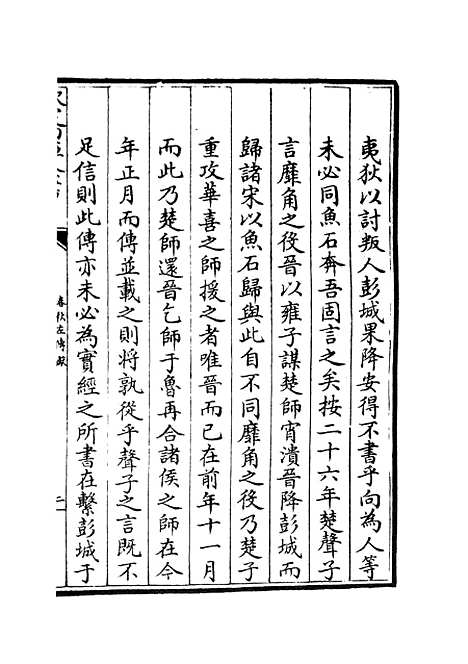 夷狄以討叛人彭城果降安得不書乎向為人等
未必同魚石奔吾固言之矣按二十六年楚聲子
言靡角之役晉以雍子謀楚師宵潰晉降彭城而
歸諸宋以魚石歸與此自不同靡角之役乃楚子
重攻華喜之師援之者唯晉而已在前年十一月
而此乃楚師還晉乞師于魯再合諸侯之師在今
年正月而傳並載之則將孰從乎聲子之言既不
足信則此傳亦未必為實經之所書在繫彭城于
春秋左傳讞